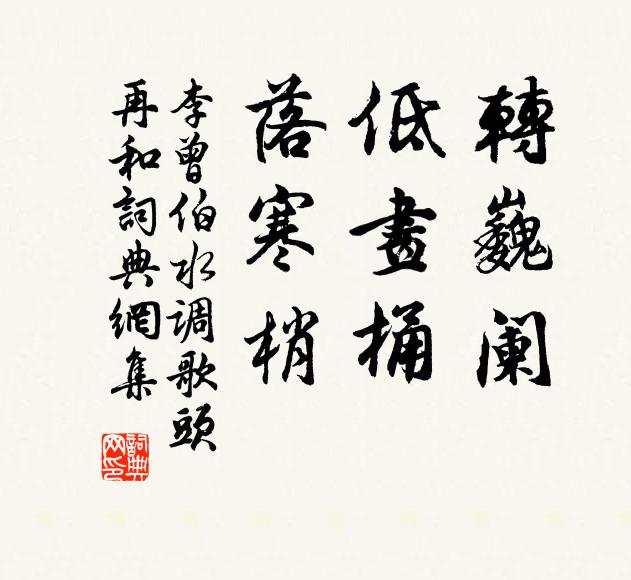 轉巍阑
低畫桶
落寒梢
李曾伯水调歌頭
再和詞典網集
詞典
网印